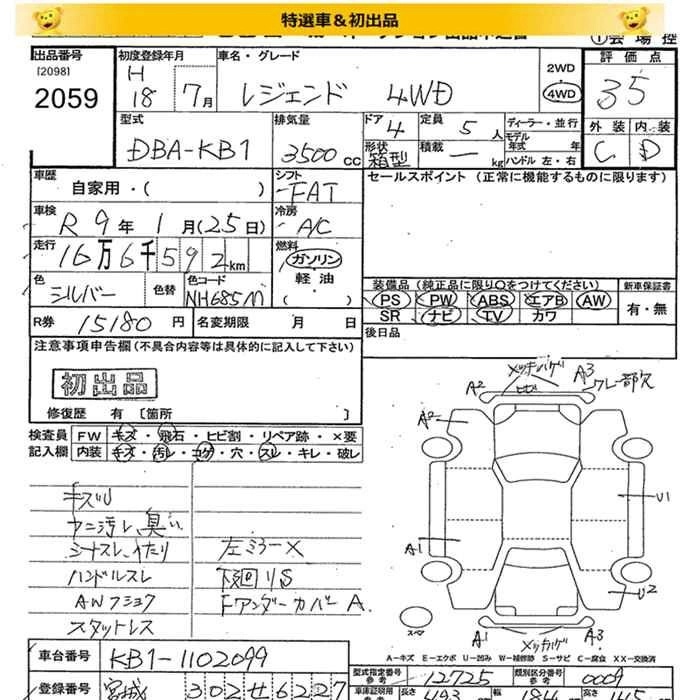 特選車＆初出品
出品番号
[2098]
2059
初度登録年月
H
18 7月
車名・グレード
レジェンド 4WD
2WD
4WD
①会場控
評価点
3.5
外装 内装
C D
型式
DBA-KB1
排気量
3500cc
ドア
4
定員
5人
形状
箱型
積載
ー kg
ディーラー・並行
モデル
年式 年
ハンドル 左・右
車歴
自家用・( )
シフト
FAT
セールスポイント (正常に機能するものに限ります)
車検
R 9年 1月(25日)
冷房
A/C
走行
16万6千592km
燃料
ガソリン
軽油
( )
色
シルバー
色替
色コード
NH685M
装備品 (純正品に限り○をつけてください)
PS PW ABS エアB AW
SR ナビ TV カワ
新車保証書
有・無
R券 15180円
名変期限 月 日
後日品
注意事項申告欄(不具合内容等は具体的に記入して下さい)
初出品
修復歴 有 [箇所 ]
検査員
記入欄
FW キズ・飛石・ヒビ割・リペア跡・×要
内装 キズ・汚レ・コゲ・穴・スレ・キレ・破レ
キズU
ヤニ汚レ、臭い
シートスレ、イたり
ハンドルスレ
AWフショク
スタットレス
左ミラーX
下廻りS
FアンダーカバーA.
メッキハゲ
ヒビ
A2
A3
グレー部欠
A2
U1
A1
U2
スマ
A1
メッキハゲ
A3
A－キズ E－エクボ U－凹み W－補修跡 S－サビ C－腐食 XX－交換済
車台番号
KB1-1102099
型式指定番号
参考
12725
類別区分番号
参考
0009
登録番号
宮城 302 せ 6227
車庫証明用
長さ
493
幅
184
高さ
145